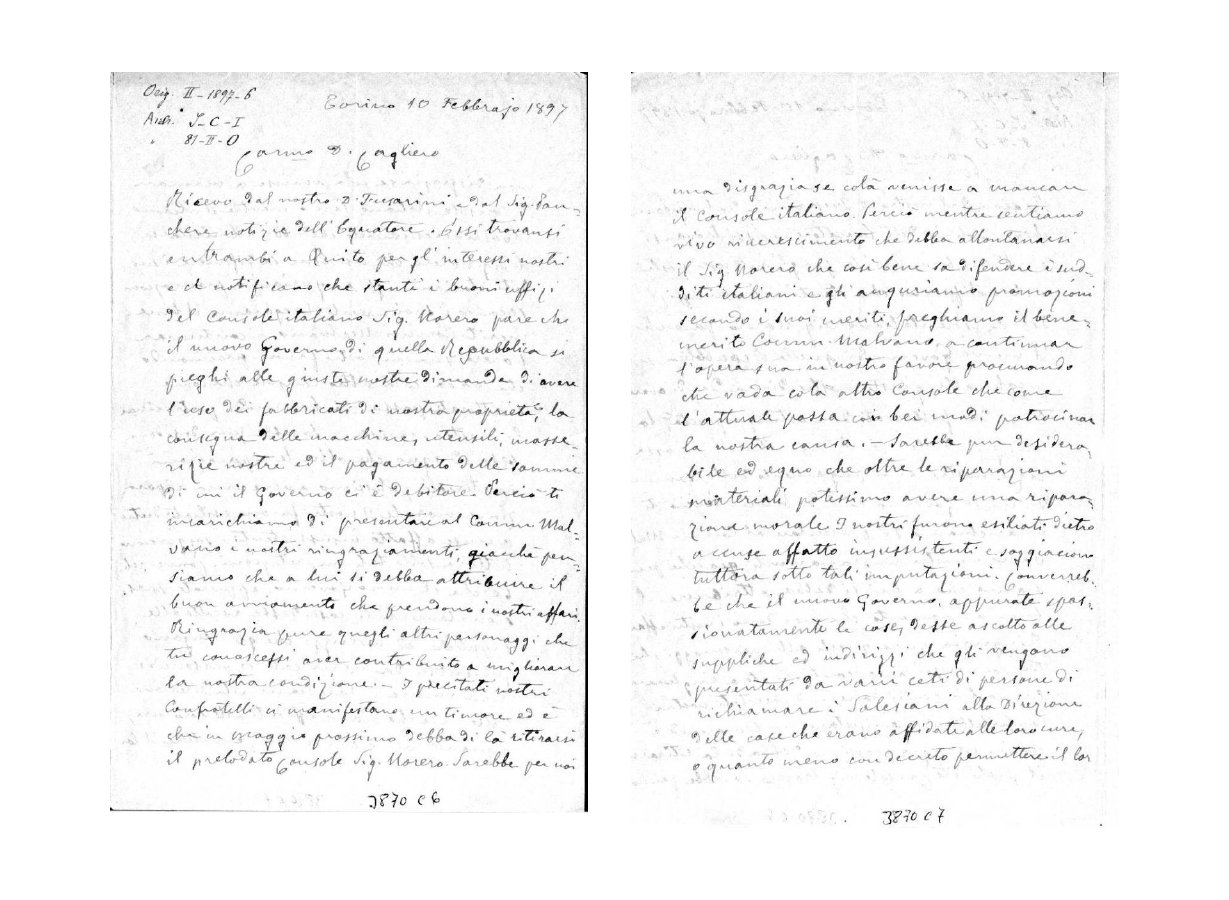 Orig. II-1897-6
Arch. S-C-I
81-II-O
Torino 10 Febbrajo 1897
Carmo D. Cagliero
Ricevo dal nostro D. Fusarini e dal Sig. Pan-
chere notizie dell'Equatore. Essi trovansi
entrambi a Quito per gl'interessi nostri
e ci notificano che stanti i buoni uffizi
del Console italiano Sig. Norero pare che
il nuovo Governo di quella Repubblica si
pieghi alle giuste nostre dimande di avere
l'uso dei fabbricati di nostra proprietà, la
consegna delle macchine, utensili, masse-
rizie nostre ed il pagamento delle somme
di cui il Governo ci è debitore. Perciò ti
incarichiamo di presentare al Comm. Mal-
vano i nostri ringraziamenti, giacchè pen-
siamo che a lui si debba attribuire il
buon avviamento che prendono i nostri affari.
Ringrazia pure quegli altri personaggi che
tu conoscessi aver contribuito a migliorare
la nostra condizione. – I precitati nostri
Confratelli ci manifestano un timore ed è
che in maggio prossimo debba di là ritirarsi
il prelodato Console Sig. Norero. Sarebbe per noi
3870 C 6
una disgrazia se colà venisse a mancare
il Console italiano. Perciò mentre sentiamo
vivo rincrescimento che debba allontanarsi
il Sig. Norero che così bene sa difendere i sud-
diti italiani e gli auguriamo promozioni
secondo i suoi meriti, preghiamo il bene-
merito Comm. Malvano, a continuar
l'opera sua in nostro favore procurando
che vada colà altro Console che come
l'attuale possa con bei modi patrocinar
la nostra causa. – Sarebbe pur desidera-
bile ed equo che oltre le riparazioni
materiali potessimo avere una ripara-
zione morale. I nostri furono esiliati dietro
accuse affatto insussistenti e soggiaciono
tuttora sotto tali imputazioni. Converreb-
be che il nuovo Governo, appurate spas-
sionatamente le cose, desse ascolto alle
suppliche ed indirizzi che gli vengono
presentati da varii ceti di persone di
richiamare i Salesiani alla Direzione
delle case che erano affidate alle loro cure,
o quanto meno con decreto permettere il lor
3870 C 7